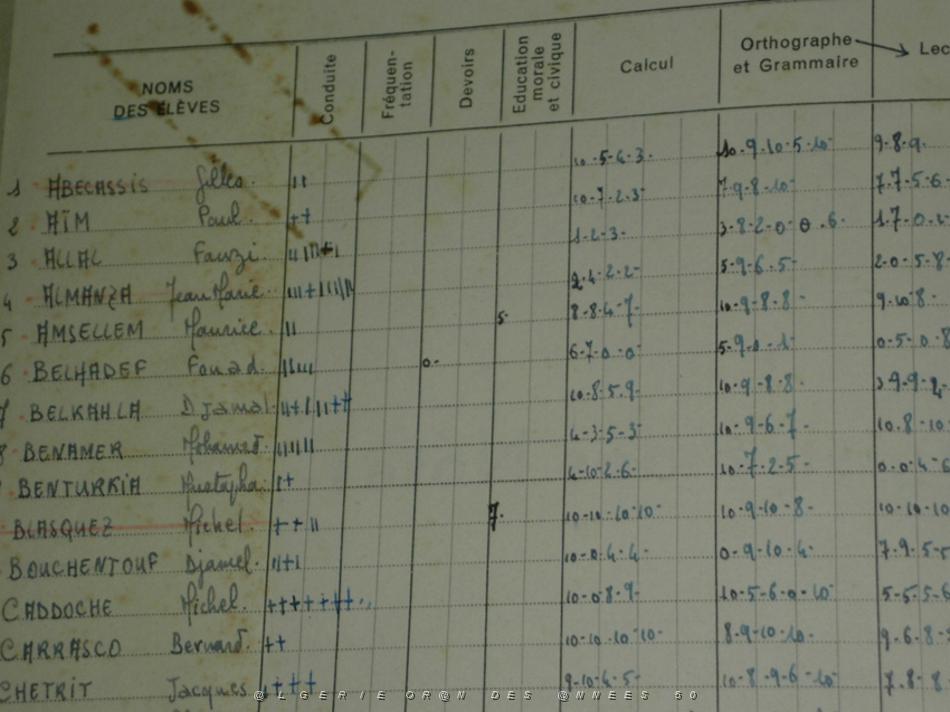 NOMS DES ÉLÈVES Conduite Fréquen-tation Devoirs Education morale et civique Calcul Orthographe et Grammaire Lec
1 ABECASSIS Gilles. 10.5.6.3. 10.9.10.5.10 9.8.9.
2 AÏM Paul. ++ 10.7.2.3 7.9.8.10 7.7.5.6.
3 ALLAL Fauzi. 1.2.3. 3.8.2.0.0.6.
4 ALMANZA Jean Marie. 2.4.2.2 5.9.6.5 2.0.5.8
5 AMSELLEM Maurice. 5. 8.8.4.7 10.9.8.8 9.10.8.
6 BELHADEF Fouad. 0. 6.7.0.0 0.5.0.8
7 BELKAHLA Djamal. 10.8.5.9. 10.9.8.8
8 BENAMER Mohamed. 4.3.5.3 10.9.6.7 10.8.10
BENTURKIA Mustapha. 4.10.2.6. 10.7.2.5 0.0.4.6
BLASQUEZ Michel. 7. 10.10.10.10 10.9.10.8 10.10.10
BOUCHENTOUF Djamel. 10.0.4.4 0.9.10.4. 7.9.5.5
CADDOCHE Michel. 10.0.8.9 10.5.6.0.10 5.5.5.6
CARRASCO Bernard. ++ 10.10.10.10 8.9.10.10. 9.6.8.
CHETRIT Jacques. 9.10.6.5 10.8.9.6.10 7.8.8
@LGERIE OR@N DES @NNEES 50